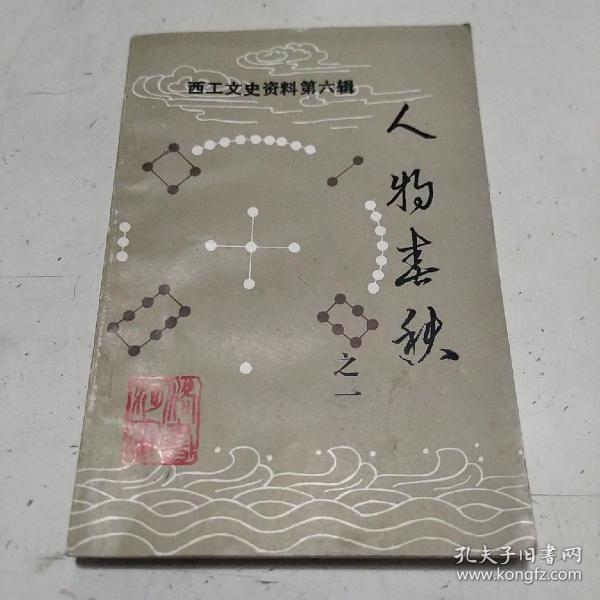 西工文史资料第六辑
人物春秋
之一
孔夫子旧书网
www.kongfz.com